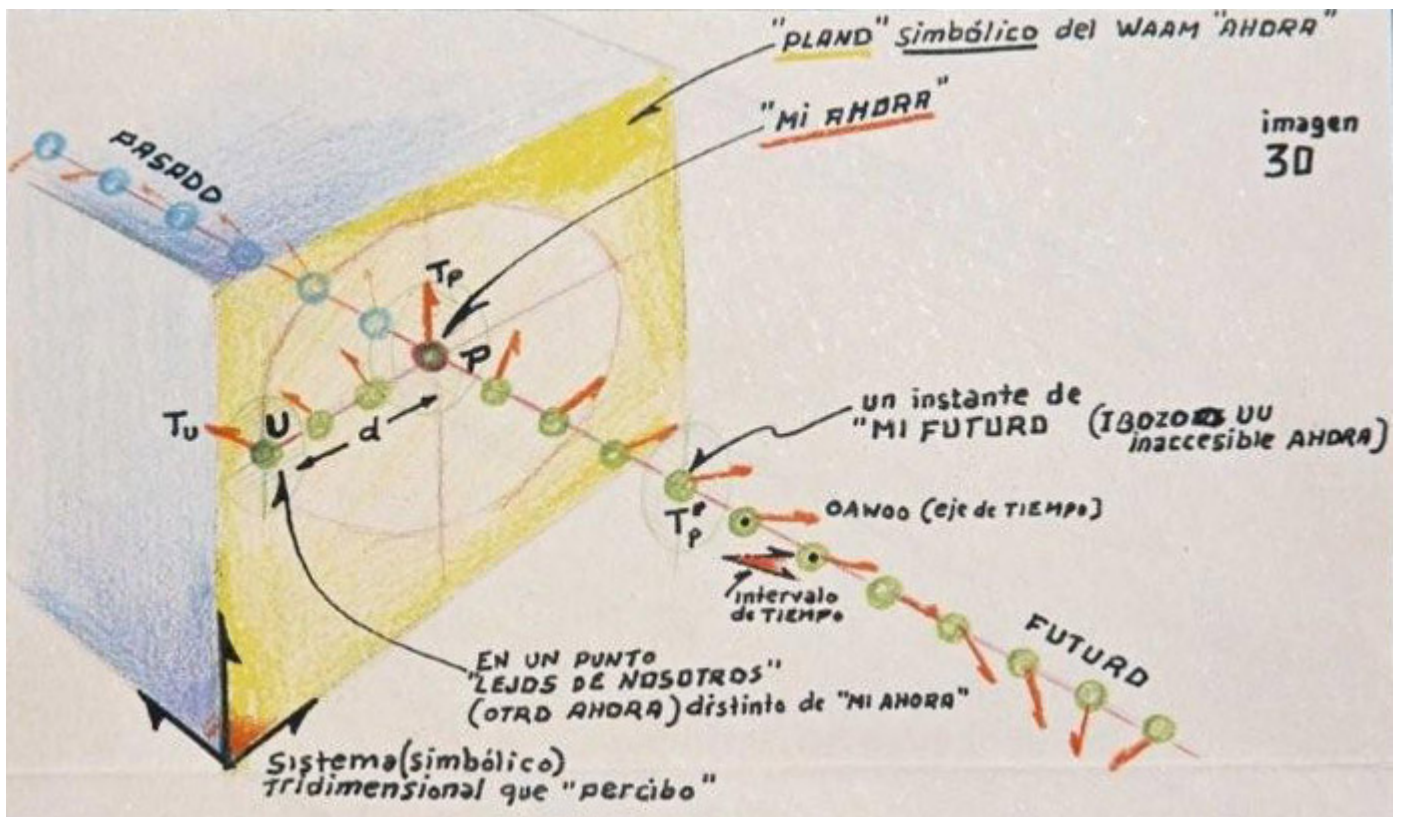 "PLANO" simbólico del WAAM "AHORA"
"Mi AHORA"
imagen
30
PASADO
Tp
P
TU
U
d
un instante de
"MI FUTURO (IBOZOO UU
inaccesible AHORA)
T'p
OAWOO (eje de TIEMPO)
intervalo
de TIEMPO
FUTURO
EN UN PUNTO
"LEJOS DE NOSOTROS"
(OTRO AHORA) distinto de "MI AHORA"
Sistema (simbólico)
Tridimensional que "percibo"